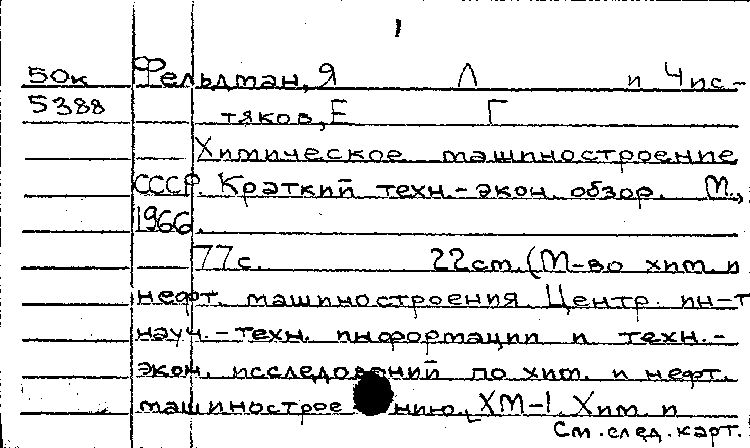 1
50к Фельдман, Я Л и Чис-
5388 тяков, Е Г
Химическое машиностроение
СССР. Краткий техн.-экон. обзор. М.,
1966.
77с. 22см. (М-во хим. и
нефт. машиностроения. Центр. ин-т
науч.-техн. информации и техн.-
экон. исследований по хим. и нефт.
машинострое нию. ХМ-1. Хим. и
См. след. карт.